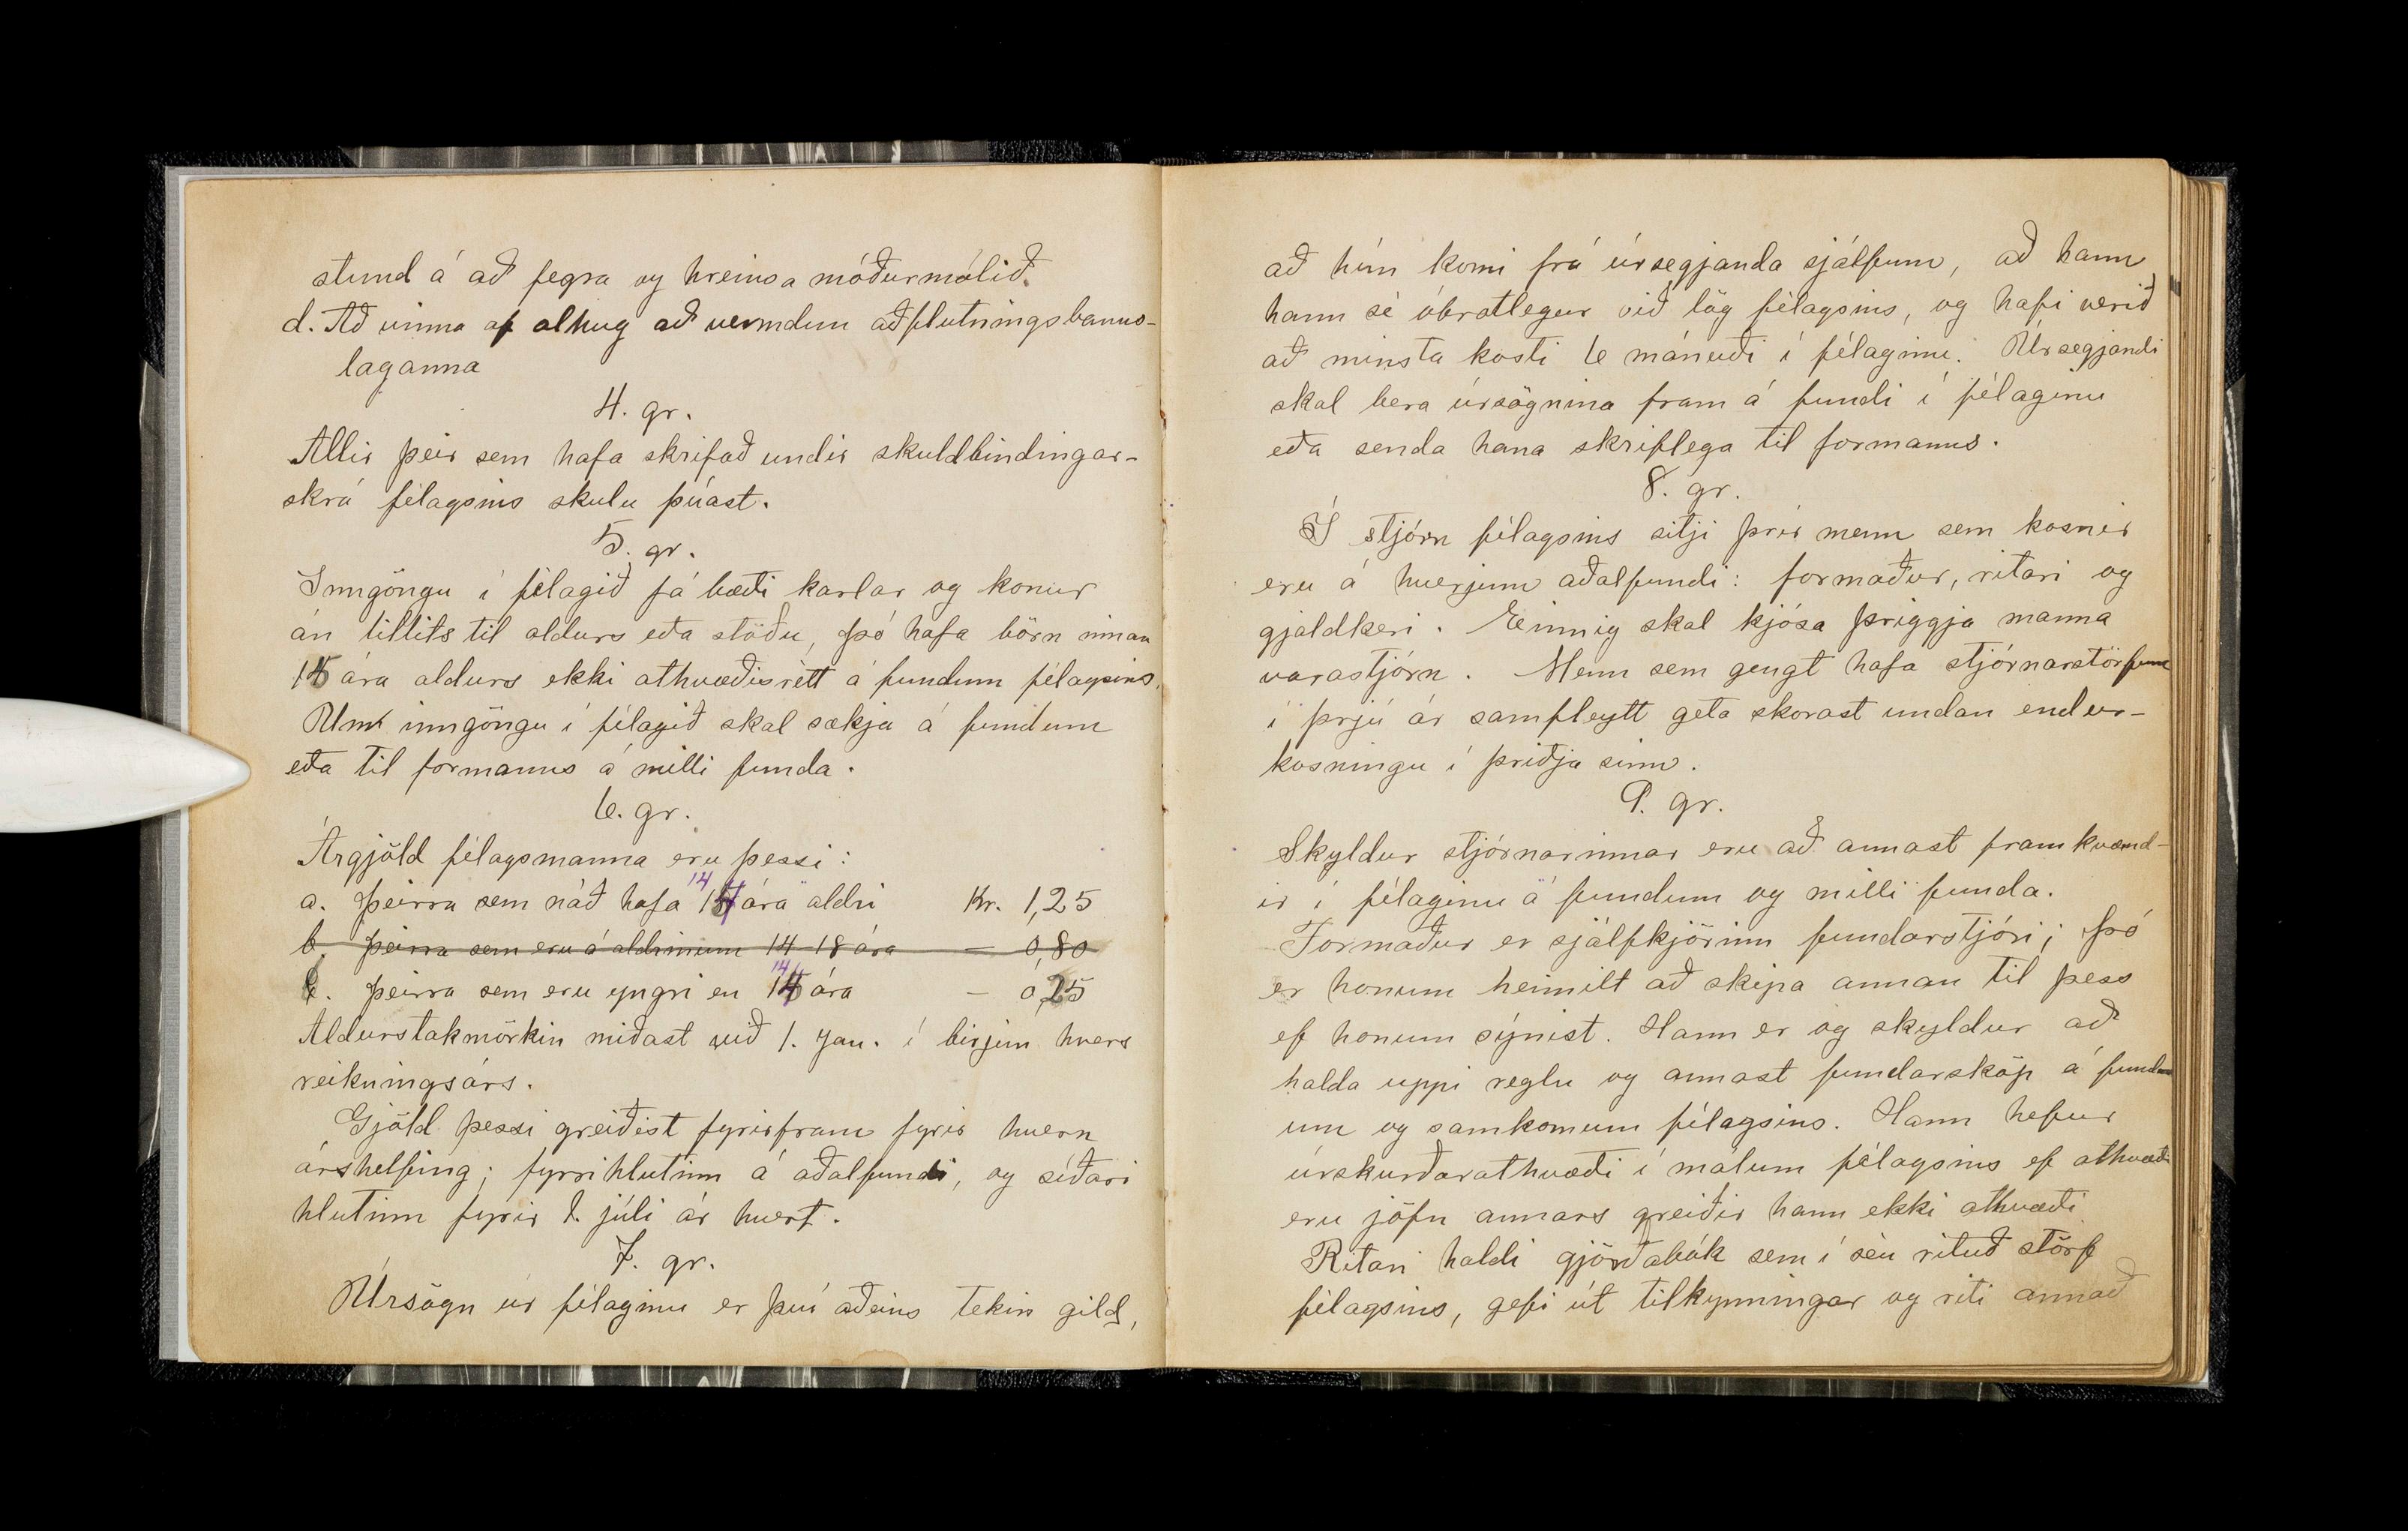 stund á að fegra og hreinsa móðurmálið.
d. Að vinna af alhug að verndun aðflutningsbanns-
laganna
4. gr.
Allir þeir sem hafa skrifað undir skuldbindingar-
skrá félagsins skulu þúast.
5. gr.
Inngöngu í félagið fá bæði karlar og konur
án tillits til aldurs eða stöðu, þó hafa börn innan
ára aldurs ekki athvæðisrétt á fundum félagsins.
Um inngöngu í félagið skal sækja á fundum
eða til formanns á milli funda.
6. gr.
Árgjöld félagsmanna eru þessi:
a. þeirra sem náð hafa 14 ára aldri Kr. 1,25
b. þeirra sem eru á aldrinum 14-18 ára — 0,80
þeirra sem eru yngri en 14 ára — 0,25
Aldurstakmörkin miðast við 1. Jan. í birjun hvers
reikningsárs.
Gjöld þessi greiðist fyrirfram fyrir hvern
árshelfing; fyrrihlutinn á aðalfundi, og síðari
hlutinn fyrir 1. júli ár hvert.
7. gr.
Úrsögn úr félaginu er því aðeins tekin gild,
að hún komi frá úrsegjanda sjálfum, að hann
hann sé óbrotlegur við lög félagsins, og hafi verið
að minsta kosti 6 mánuði í félaginu. Úrsegjandi
skal bera úrsögnina fram á fundi í félaginu
eða senda hana skriflega til formanns.
8. gr.
Í stjórn félagsins sitji þrír menn sem kosnir
eru á hverjum aðalfundi: formaður, ritari og
gjaldkeri. Einnig skal kjósa þriggja manna
varastjórn. Menn sem gengt hafa stjórnarstörfum
í þrjú ár samfleytt geta skorast undan endur-
kosningu í þriðja sinn.
9. gr.
Skyldur stjórnarinnar eru að annast framkvæmd-
ir í félaginu á fundum og milli funda.
Formaður er sjálfkjörinn fundarstjóri; þó
er honum heimilt að skipa annan til þess
ef honum sýnist. Hann er og skyldur að
halda uppi reglu og annast fundarsköp á fund
um og samkomum félagsins. Hann hefur
úrskurðarathvæði í málum félagsins ef athvæði
eru jöfn annars greiðir hann ekki athvæði
Ritari haldi gjörðabók sem í séu rituð störf
félagsins, gefi út tilkynningar og riti annað